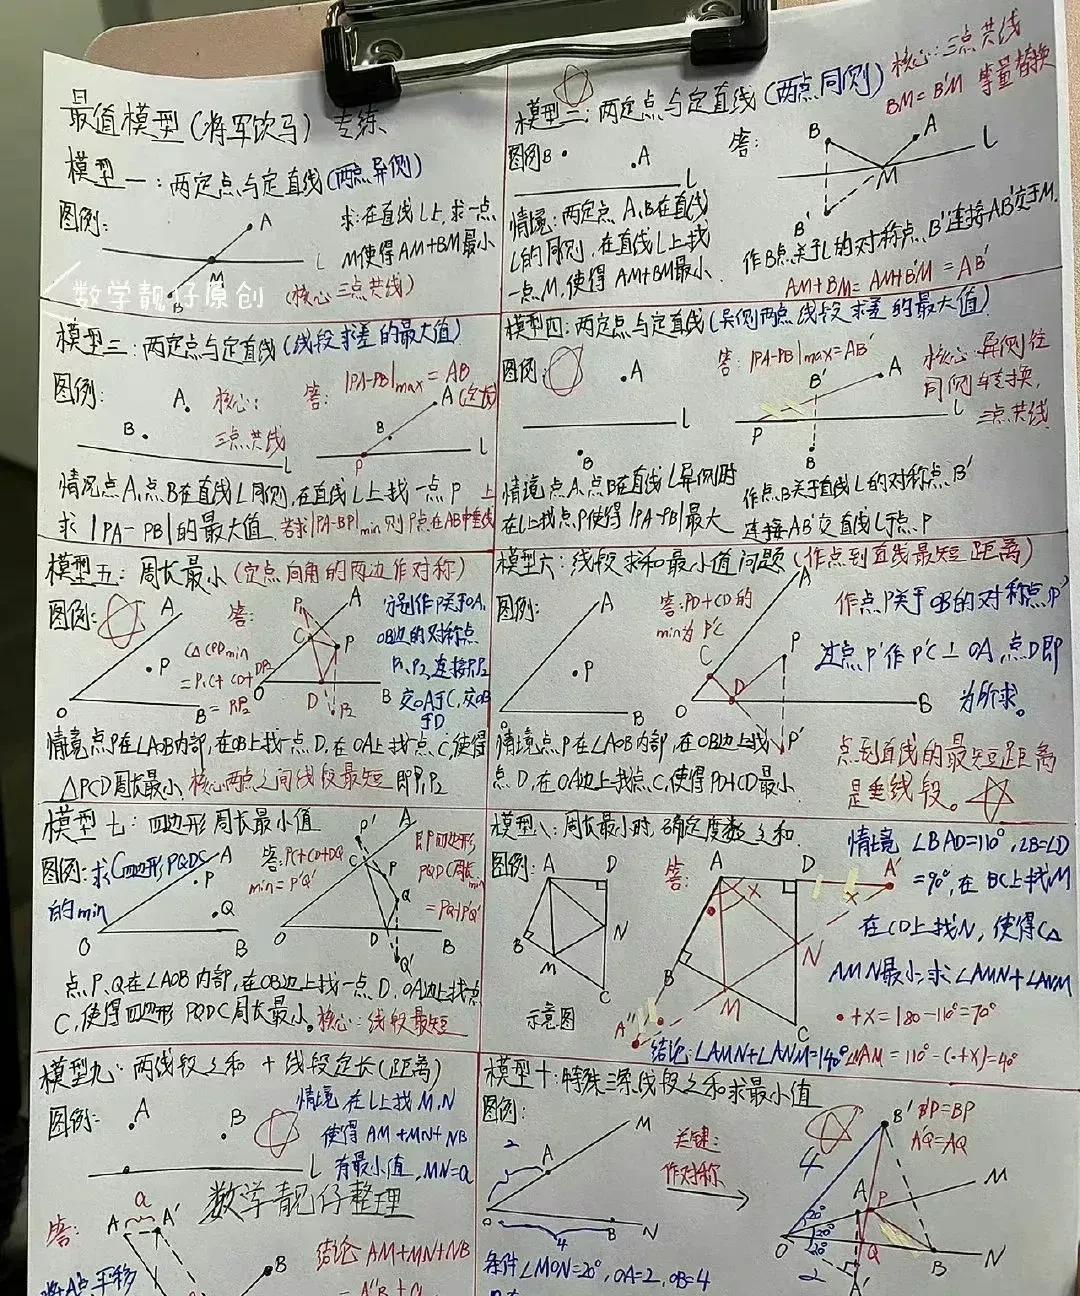 最值模型(将军饮马) 专练
模型一:两定点与定直线(两点异侧)
图例:
求:在直线L上,求一点
M使得AM+BM最小
(核心三点共线)
A
M
L
B
数学靓仔原创
模型二:两定点与定直线(两点同侧)
核心:三点共线
BM=B'M 等量替换
图例
B
A
L
答:
B
A
L
M
B'
情境:两定点A,B在直线
L的同侧,在直线L上找
一点M,使得AM+BM最小
作B点关于L的对称点B'连接AB'交于M.
AM+BM=AM+B'M=AB'
模型三:两定点与定直线(线段求差的最大值)
图例:
A
B
L
核心:
三点共线
答:
|PA-PB|max=AB
A
B
P
L
情况点A,点B在直线L同侧,在直线L上找一点P
求|PA-PB|的最大值
若求|PA-BP|min则P点在AB中垂线上
模型四:两定点与定直线(异侧两点线段求差的最大值)
图例:
A
L
B
答:|PA-PB|max=AB'
B'
A
P
L
B
核心:异侧位
同侧转换,
三点共线
情境点A,点B在直线L异侧时
在L上找点P使得|PA-PB|最大
作点B关于直线L的对称点B'
连接AB'交直线L于点P
模型五:周长最小(定点向角的两边作对称)
图例:
A
P
O
B
答:
C△CPDmin
=P1C+CD+DP2
=P1P2
P1
A
C
P
O
D
B
P2
分别作P关于OA,
OB边的对称点
P1,P2,连接P1P2
交OA于C,交OB
于D
情境点P在∠AOB内部,在OB上找一点D,在OA上找一点C,使得
△PCD周长最小,核心两点之间线段最短 即P1P2
模型六:线段求和最小值问题(作点到直线最短距离)
图例:
A
P
O
B
答:PD+CD的
min为P'C
A
P
C
O
D
B
P'
作点P关于OB的对称点P'
过点P'作P'C⊥OA,点D即
为所求。
情境点P在∠AOB内部,在OB边上找
点D,在OA边上找点C,使得PD+CD最小
点到直线的最短距离
是垂线段。
模型七:四边形周长最小值
图例:求C四边形PQDC
的min
A
P
Q
O
B
答:PC+CD+DQ
min=P'Q'
P'
A
C
P
Q
O
D
B
Q'
即四边形
PQDC周长min
=PQ+P'Q'
点P、Q在∠AOB内部,在OB边上找一点D,OA边上找点
C,使得四边形PQDC周长最小。核心:线段最短
模型八:周长最小时,确定度数之和
图例:
A
D
B
N
M
C
示意图
答:
A
D
A'
N
B
M
C
A''
情境∠BAD=110°,∠B=∠D
=90°,在BC上找M
在CD上找N,使得C△
AMN最小;求∠AMN+∠ANM
•+X=180-110°=70°
结论:∠AMN+∠ANM=140°
∠NAM=110°-(•+X)=40°
模型九:两线段之和+线段定长(距离)
图例:
A
B
L
情境 在L上找M,N
使得AM+MN+NB
有最小值,MN=a
数学靓仔整理
答:
a
A
A'
B
结论AM+MN+NB
=A''B+a
将A点平移
模型十:特殊三条线段之和求最小值
图例:
2
A
M
O
4
B
N
条件∠MON=20°,OA=2,OB=4
关键:
作对称
B'
B'P=BP
A'Q=AQ
4
A
P
M
20°
20°
20°
O
Q
B
N
2
A'